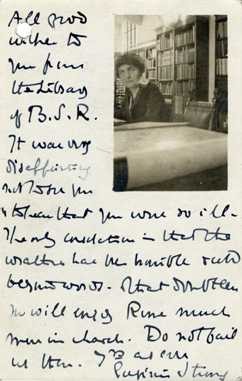 All good
wishes to
you from
the Library
of B.S.R.
It was very
disappointing
not to see you
to hear that you were so ill.
The only consolation is that the
weather has been horrible cold
beyond words. But doubtless
you will enjoy Rome much
more in March. Do not fail
us then. Yrs as ever
Eugénie Strong